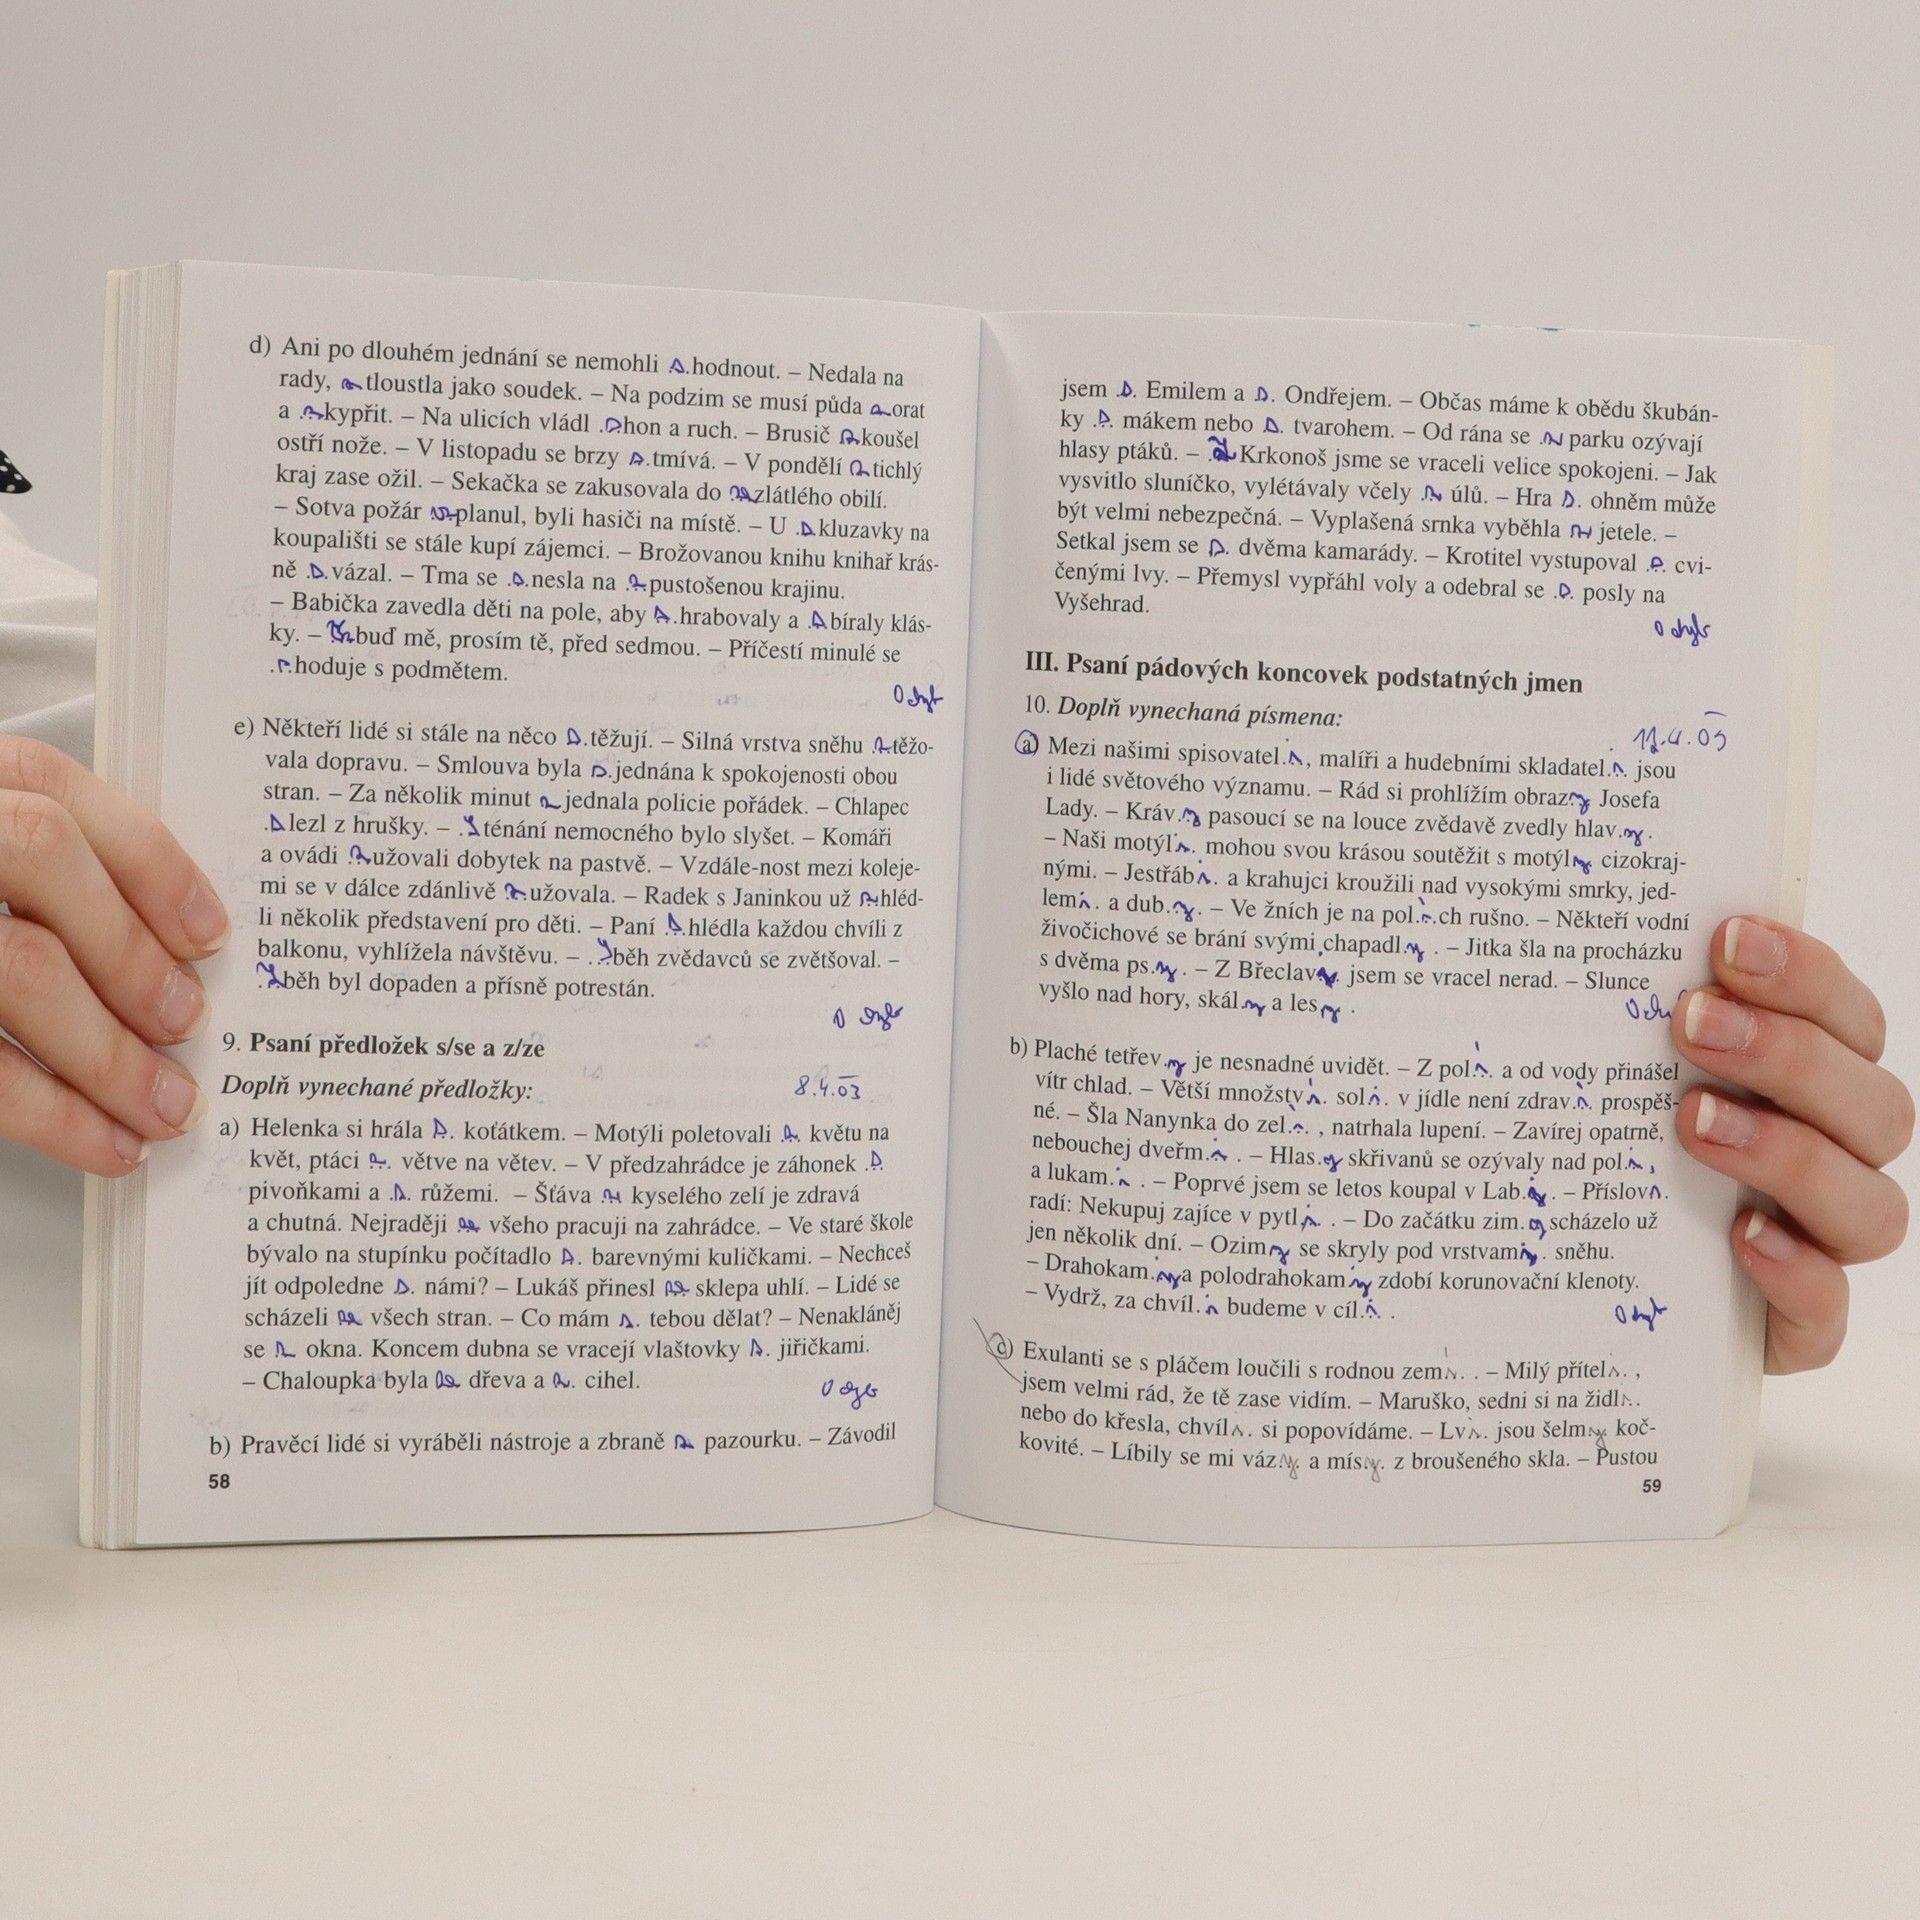 d) Ani po dlouhém jednání se nemohli s.hodnout. – Nedala na
rady, z tloustla jako soudek. – Na podzim se musí půda z orat
a .z.kypřit. – Na ulicích vládl .s.hon a ruch. – Brusič z koušel
ostří nože. – V listopadu se brzy s.tmívá. – V pondělí z tichlý
kraj zase ožil. – Sekačka se zakusovala do ze zlátlého obilí.
– Sotva požár vz planul, byli hasiči na místě. – U .s.kluzavky na
koupališti se stále kupí zájemci. – Brožovanou knihu knihař krás-
ně .s.vázal. – Tma se .s.nesla na .z.pustošenou krajinu.
– Babička zavedla děti na pole, aby s.hrabovaly a .s bíraly klás-
ky. – Vz buď mě, prosím tě, před sedmou. – Příčestí minulé se
.s.hoduje s podmětem.
0 chyb
e) Někteří lidé si stále na něco s.těžují. – Silná vrstva sněhu .z.těžo-
vala dopravu. – Smlouva byla s.jednána k spokojenosti obou
stran. – Za několik minut z jednala policie pořádek. – Chlapec
.s lezl z hrušky. – .S ténání nemocného bylo slyšet. – Komáři
a ovádi .z.užovali dobytek na pastvě. – Vzdále-nost mezi koleje-
mi se v dálce zdánlivě z.užovala. – Radek s Janinkou už z.hléd-
li několik představení pro děti. – Paní .s.hlédla každou chvíli z
balkonu, vyhlížela návštěvu. – .S.běh zvědavců se zvětšoval. –
.Z.běh byl dopaden a přísně potrestán.
0 chyb
9. Psaní předložek s/se a z/ze
Doplň vynechané předložky: 8.4.03
a) Helenka si hrála s. koťátkem. – Motýli poletovali .s. květu na
květ, ptáci z. větve na větev. – V předzahrádce je záhonek .s.
pivoňkami a .s. růžemi. – Šťáva .z kyselého zelí je zdravá
a chutná. Nejraději ze všeho pracuji na zahrádce. – Ve staré škole
bývalo na stupínku počítadlo s. barevnými kuličkami. – Nechceš
jít odpoledne s. námi? – Lukáš přinesl ze sklepa uhlí. – Lidé se
scházeli ze všech stran. – Co mám s. tebou dělat? – Nenakláněj
se z okna. Koncem dubna se vracejí vlaštovky s. jiřičkami.
– Chaloupka byla ze dřeva a z. cihel.
0 chyb
b) Pravěcí lidé si vyráběli nástroje a zbraně z pazourku. – Závodil
58
jsem .s. Emilem a s. Ondřejem. – Občas máme k obědu škubán-
ky .s. mákem nebo s. tvarohem. – Od rána se .z parku ozývají
hlasy ptáků. – .Z Krkonoš jsme se vraceli velice spokojeni. – Jak
vysvitlo sluníčko, vylétávaly včely .z úlů. – Hra s. ohněm může
být velmi nebezpečná. – Vyplašená srnka vyběhla z jetele. –
Setkal jsem se s. dvěma kamarády. – Krotitel vystupoval .s. cvi-
čenými lvy. – Přemysl vypřáhl voly a odebral se .s. posly na
Vyšehrad.
0 chyb
III. Psaní pádových koncovek podstatných jmen
10. Doplň vynechaná písmena:
a) Mezi našimi spisovatel.i, malíři a hudebními skladatel.i. jsou
i lidé světového významu. – Rád si prohlížím obraz.y Josefa
Lady. – Kráv.y pasoucí se na louce zvědavě zvedly hlav.y.
– Naši motýl.i. mohou svou krásou soutěžit s motýl.y. cizokraj-
nými. – Jestřáb.i. a krahujci kroužili nad vysokými smrky, jed-
lem.i. a dub.y. – Ve žních je na pol.í.ch rušno. – Někteří vodní
živočichové se brání svými chapadl.y . – Jitka šla na procházku
s dvěma ps.y. – Z Břeclav.i. jsem se vracel nerad. – Slunce
vyšlo nad hory, skál.y a les.y .
b) Plaché tetřev.y je nesnadné uvidět. – Z pol.í. a od vody přinášel
vítr chlad. – Větší množstv.í. sol.i. v jídle není zdrav.í. prospěš-
né. – Šla Nanynka do zel.í. , natrhala lupení. – Zavírej opatrně,
nebouchej dveřm.i. . – Hlas.y skřivanů se ozývaly nad pol.i ,
a lukam.i. . – Poprvé jsem se letos koupal v Lab.i. – Příslov.í.
radí: Nekupuj zajíce v pytl.i. . – Do začátku zim.y scházelo už
jen několik dní. – Ozim.y se skryly pod vrstvam.i. sněhu.
– Drahokam.y a polodrahokam.y zdobí korunovační klenoty.
– Vydrž, za chvíl.i budeme v cíl.i. .
0 chyb
c) Exulanti se s pláčem loučili s rodnou zem.í. . – Milý přítel.i. ,
jsem velmi rád, že tě zase vidím. – Maruško, sedni si na židl.i.
nebo do křesla, chvíl.i. si popovídáme. – Lv.i. jsou šelm.y koč-
kovité. – Líbily se mi váz.y. a mís.y. z broušeného skla. – Pustou
59